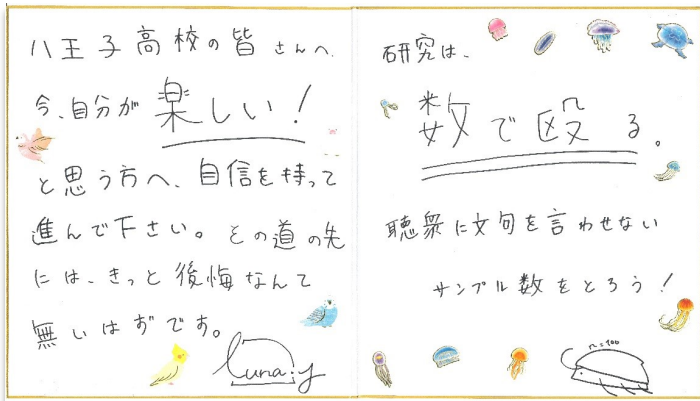 八王子高校の皆さんへ、
今、自分が楽しい！
と思う方へ、自信を持って
進んで下さい。その道の先
には、きっと後悔なんて
無いはずです。
Luna.y
研究は、
数で殴る。
聴衆に文句を言わせない
サンプル数をとろう！
n=100